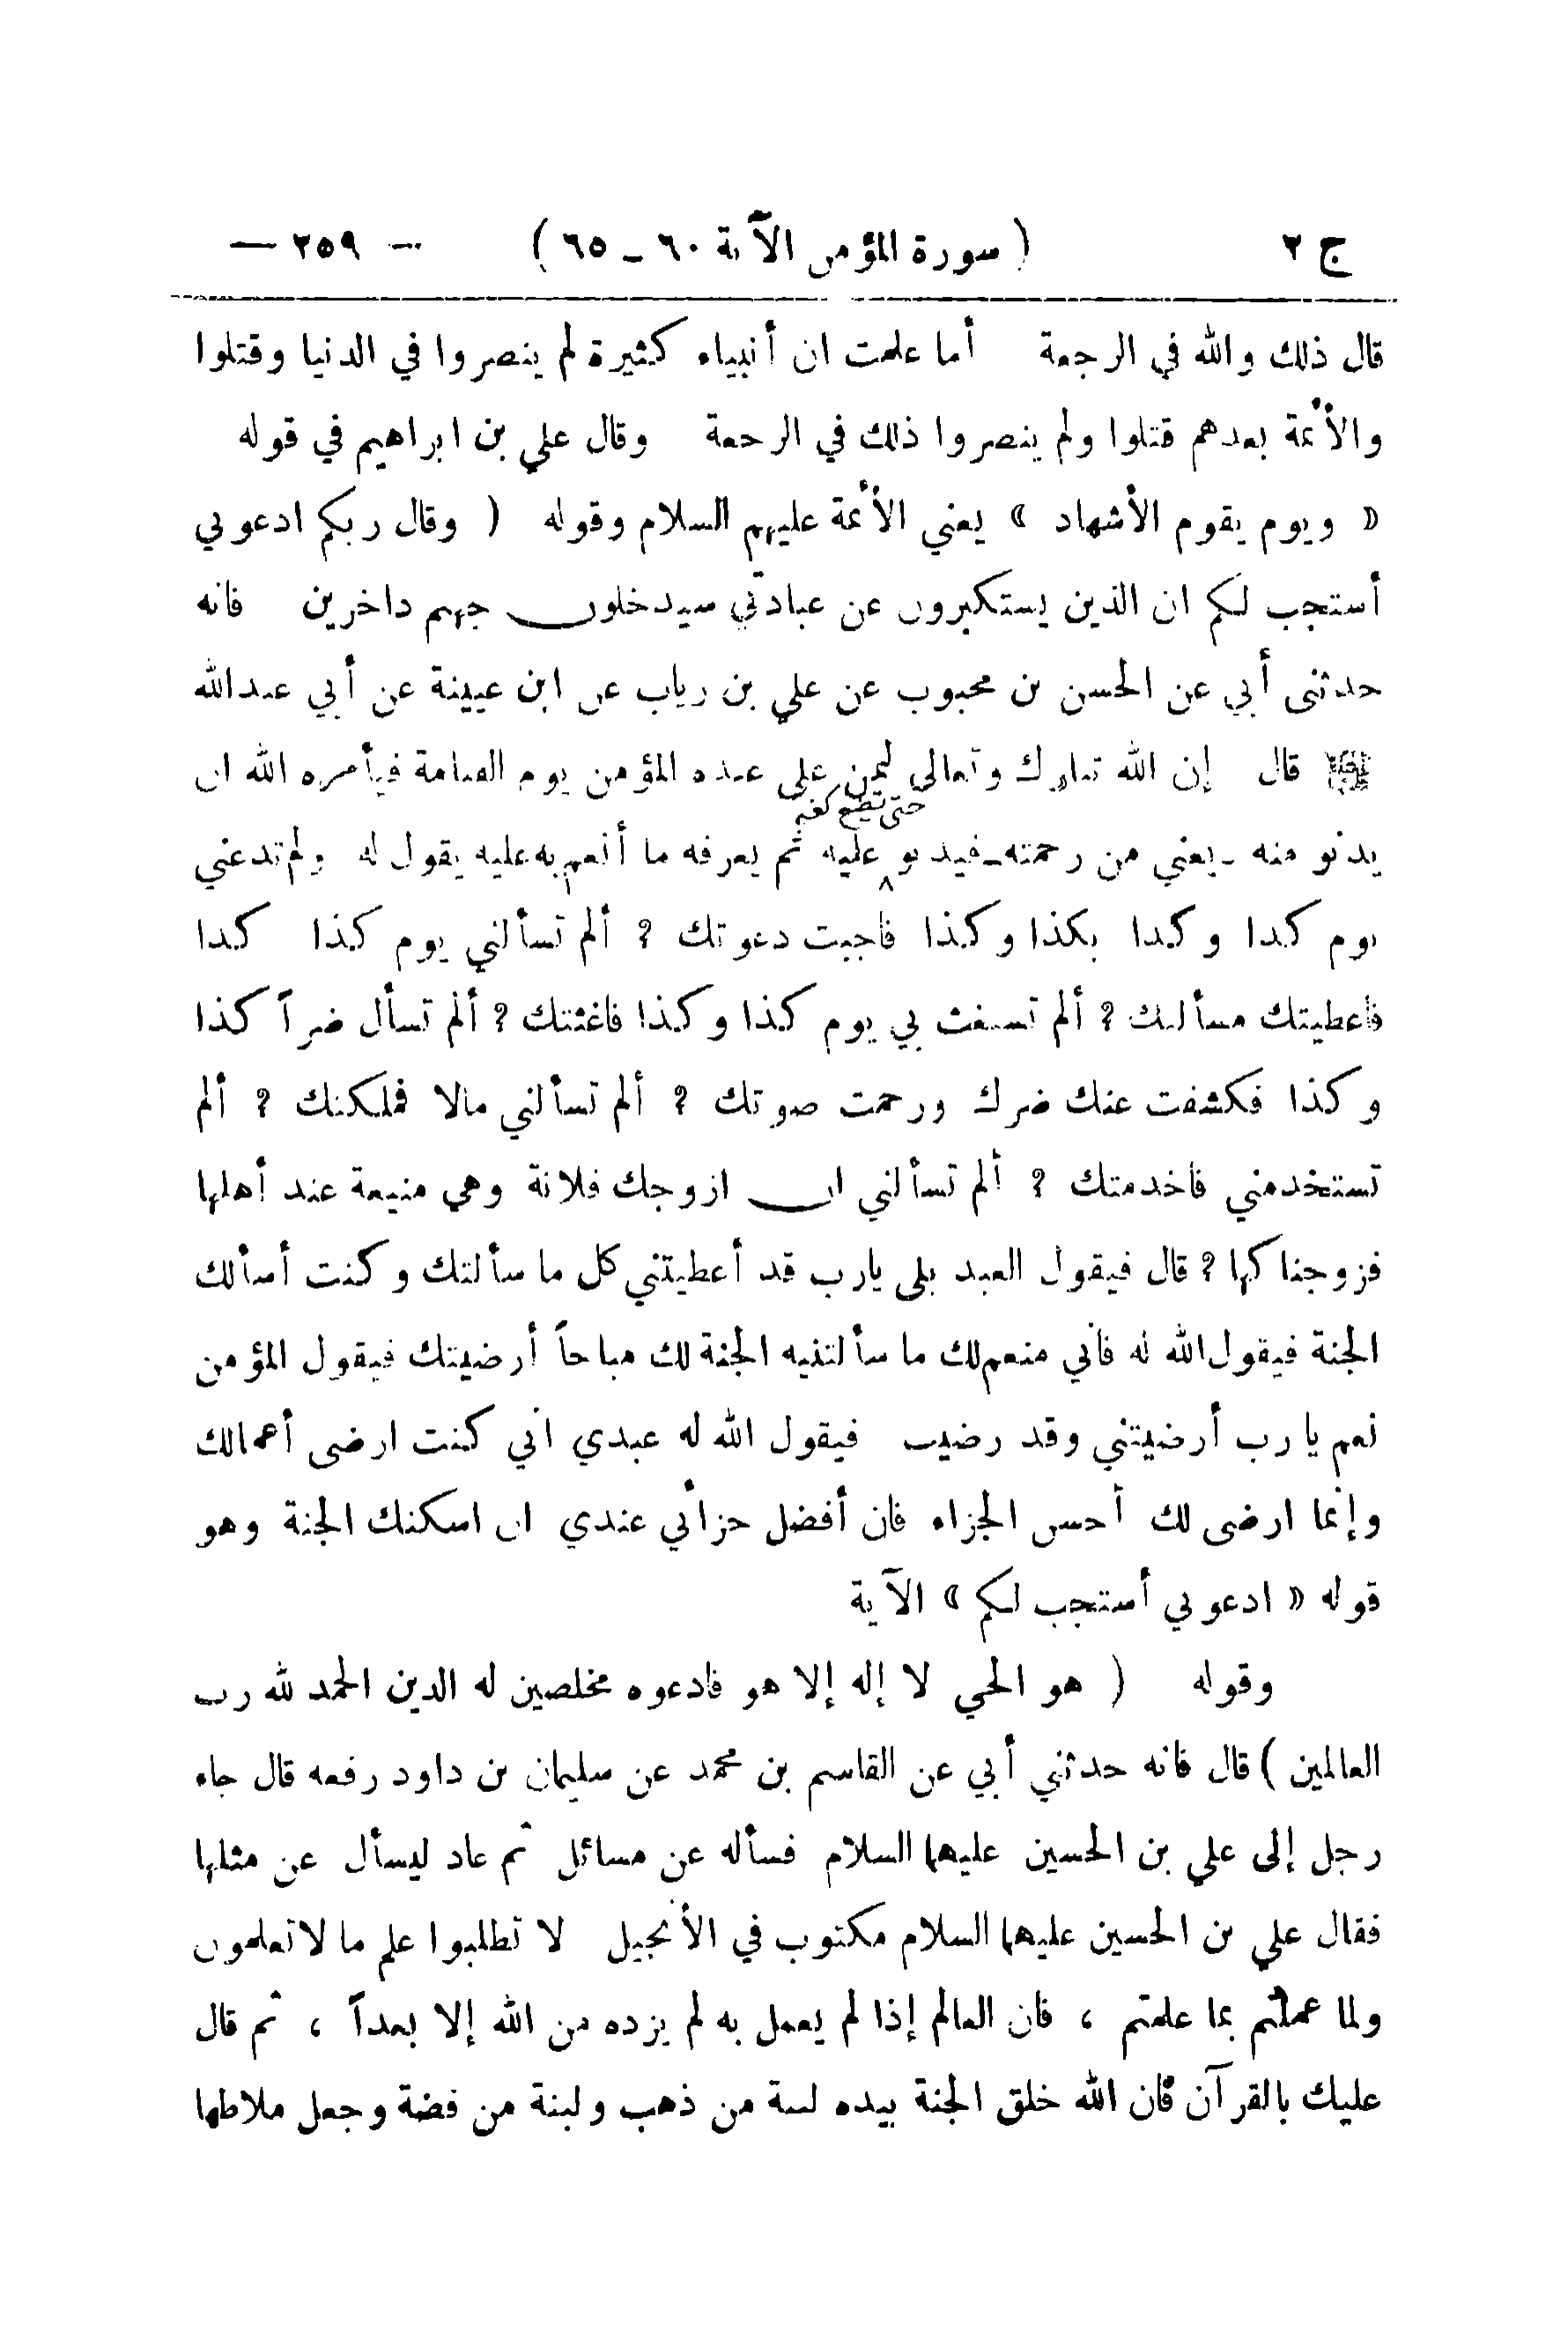 ج ٢ ( سورة المؤمن الآية ٦٠ ـ ٦٥ ) — ٢٥٩ —
قال ذلك والله في الرجعة أما علمت ان أنبياء كثيرة لم ينصروا في الدنيا وقتلوا
والأئمة بعدهم قتلوا ولم ينصروا ذلك في الرجعة وقال علي بن ابراهيم في قوله
« ويوم يقوم الأشهاد » يعني الأئمة عليهم السلام وقوله ( وقال ربكم ادعوني
أستجب لكم ان الذين يستكبرون عن عبادتي سيدخلون جهنم داخرين فانه
حدثني أبي عن الحسن بن محبوب عن علي بن رياب عن ابن عيينة عن أبي عبدالله
قال إن الله تبارك وتعالى ليمن على عبده المؤمن يوم القيامة فيأمره الله ان
حتى تضع كفه
يدنو منه ـ يعني من رحمته ـ فيدنو عليه ثم يعرفه ما أنعم به عليه يقول له ولم تدعني
يوم كذا وكذا بكذا وكذا فاجبت دعوتك ? ألم تسألني يوم كذا كذا
فاعطيتك مسألتك ? ألم تستغث بي يوم كذا وكذا فاغثتك ? ألم تسأل ضراً كذا
وكذا فكشفت عنك ضرك ورحمت صوتك ? ألم تسألني مالا فملكتك ? ألم
تستخدمني فاخدمتك ? ألم تسألني ان ازوجك فلانة وهي منيعة عند أهلها
فزوجناكها ? قال فيقول العبد بلى يارب قد أعطيتني كل ما سألتك وكنت أسألك
الجنة فيقول الله له فأني منعم لك ما سألتنيه الجنة لك مباحاً أرضيتك فيقول المؤمن
نعم يا رب أرضيتني وقد رضيت فيقول الله له عبدي اني كنت ارضى أعمالك
وإنما ارضى لك أحسن الجزاء فان أفضل جزائي عندي ان اسكنك الجنة وهو
قوله « ادعوني أستجب لكم » الآية
وقوله ( هو الحي لا إله إلا هو فادعوه مخلصين له الدين الحمد لله رب
العالمين ) قال فانه حدثني أبي عن القاسم بن محمد عن سليمان بن داود رفعه قال جاء
رجل إلى علي بن الحسين عليهما السلام فسأله عن مسائل ثم عاد ليسأل عن مثلها
فقال علي بن الحسين عليهما السلام مكتوب في الأنجيل لا تطلبوا علم ما لا تعلمون
ولما عملتم بما علمتم ، فان العالم إذا لم يعمل به لم يزده من الله إلا بعداً ، ثم قال
عليك بالقرآن فان الله خلق الجنة بيده لبنة من ذهب ولبنة من فضة وجعل ملاطها